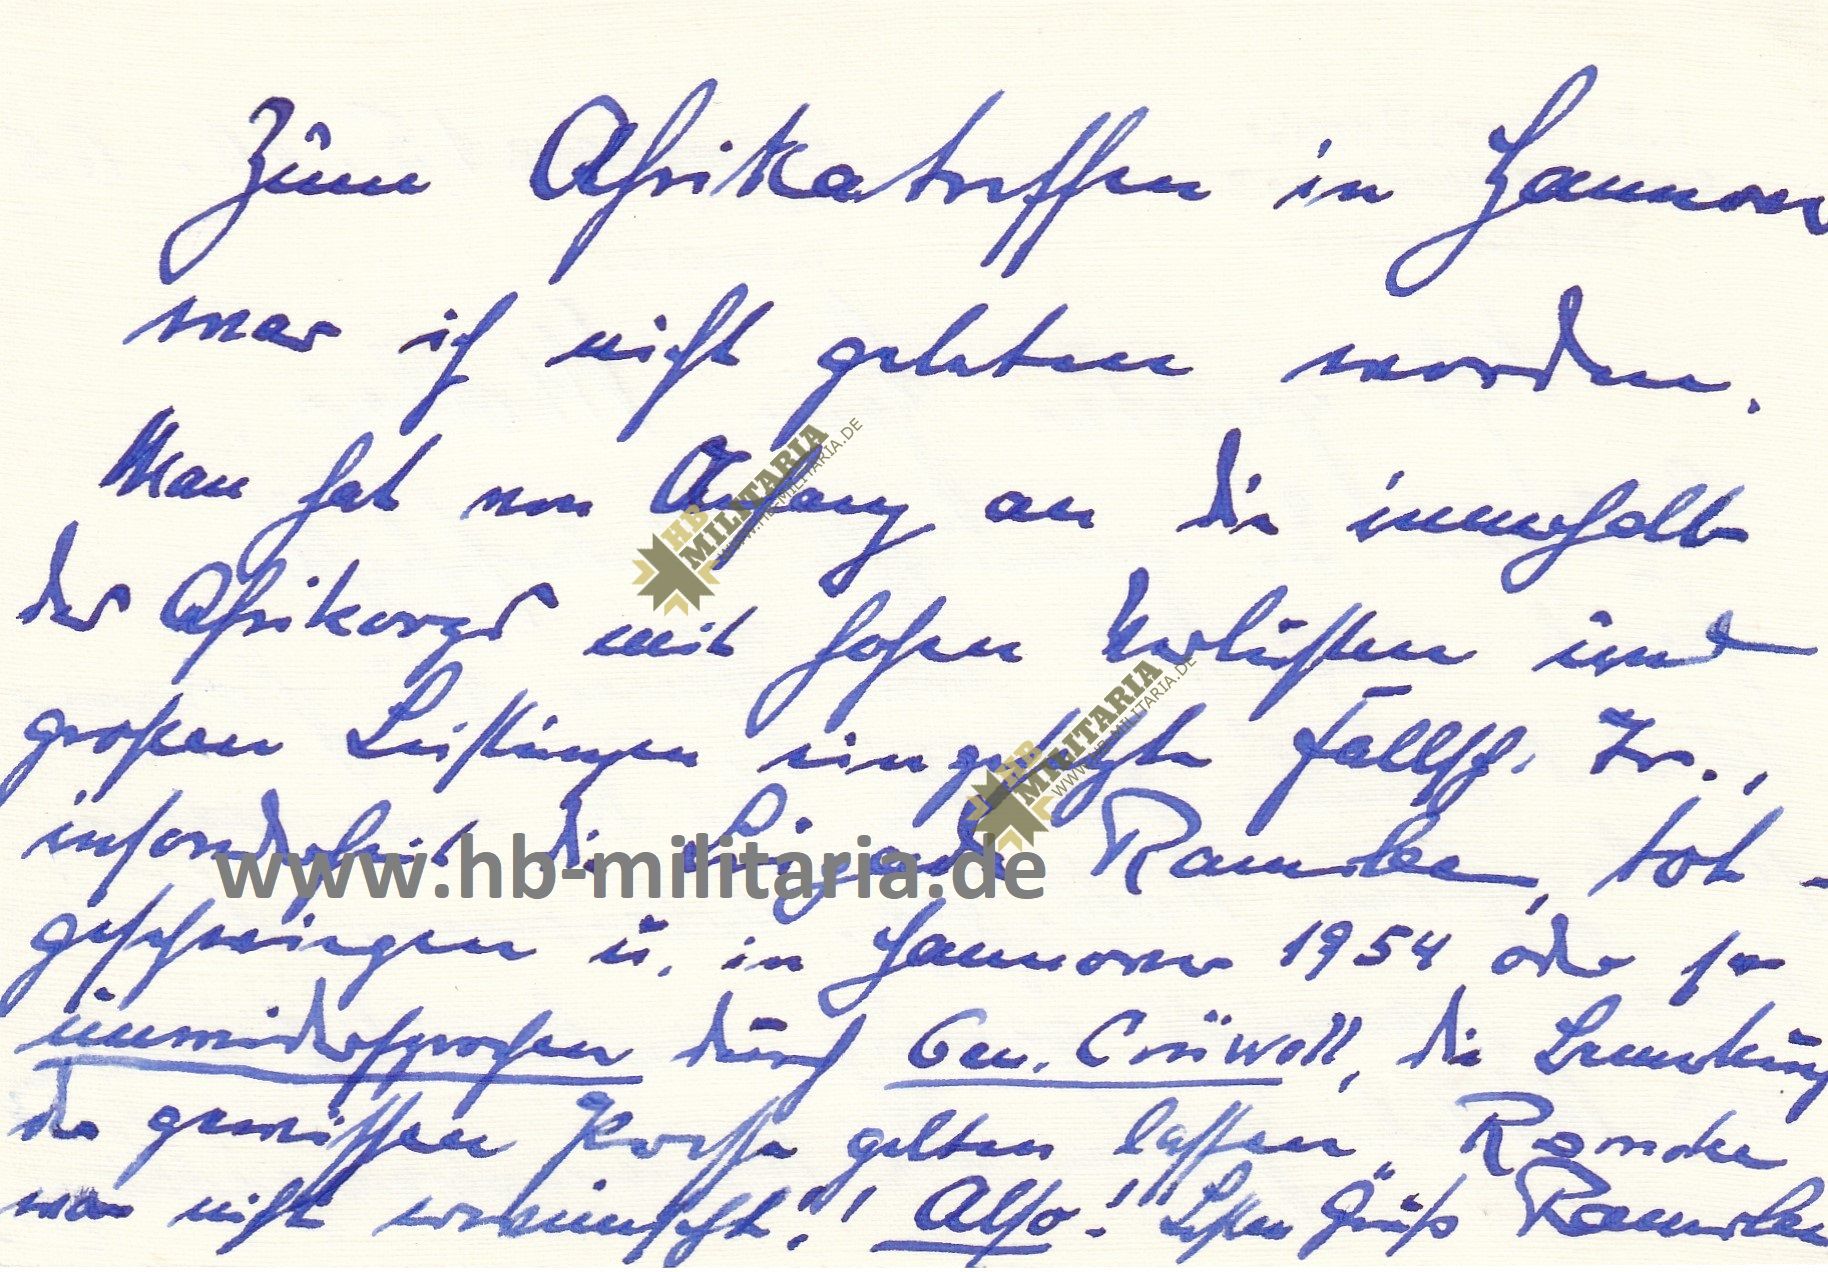 Zum Afrikatreffen in Hannover
war ich nicht gebeten worden.
Man hat von Anfang an die innerhalb
des Afrikorps mit hohen Verlusten und
großen Leistungen eingesetzte Fallsch. Tr.,
insonderheit die Brigade Ramcke, tot-
geschwiegen u. in Hannover 1954 oder so
unwidersprochen durch Gen. Crüwell, die Bemerkung
der gewissen Presse gelten lassen „Ramcke
war nicht erwünscht“! Also! Besten Gruß Ramcke
HB MILITARIA
WWW.HB-MILITARIA.DE
HB MILITARIA
WWW.HB-MILITARIA.DE
www.hb-militaria.de